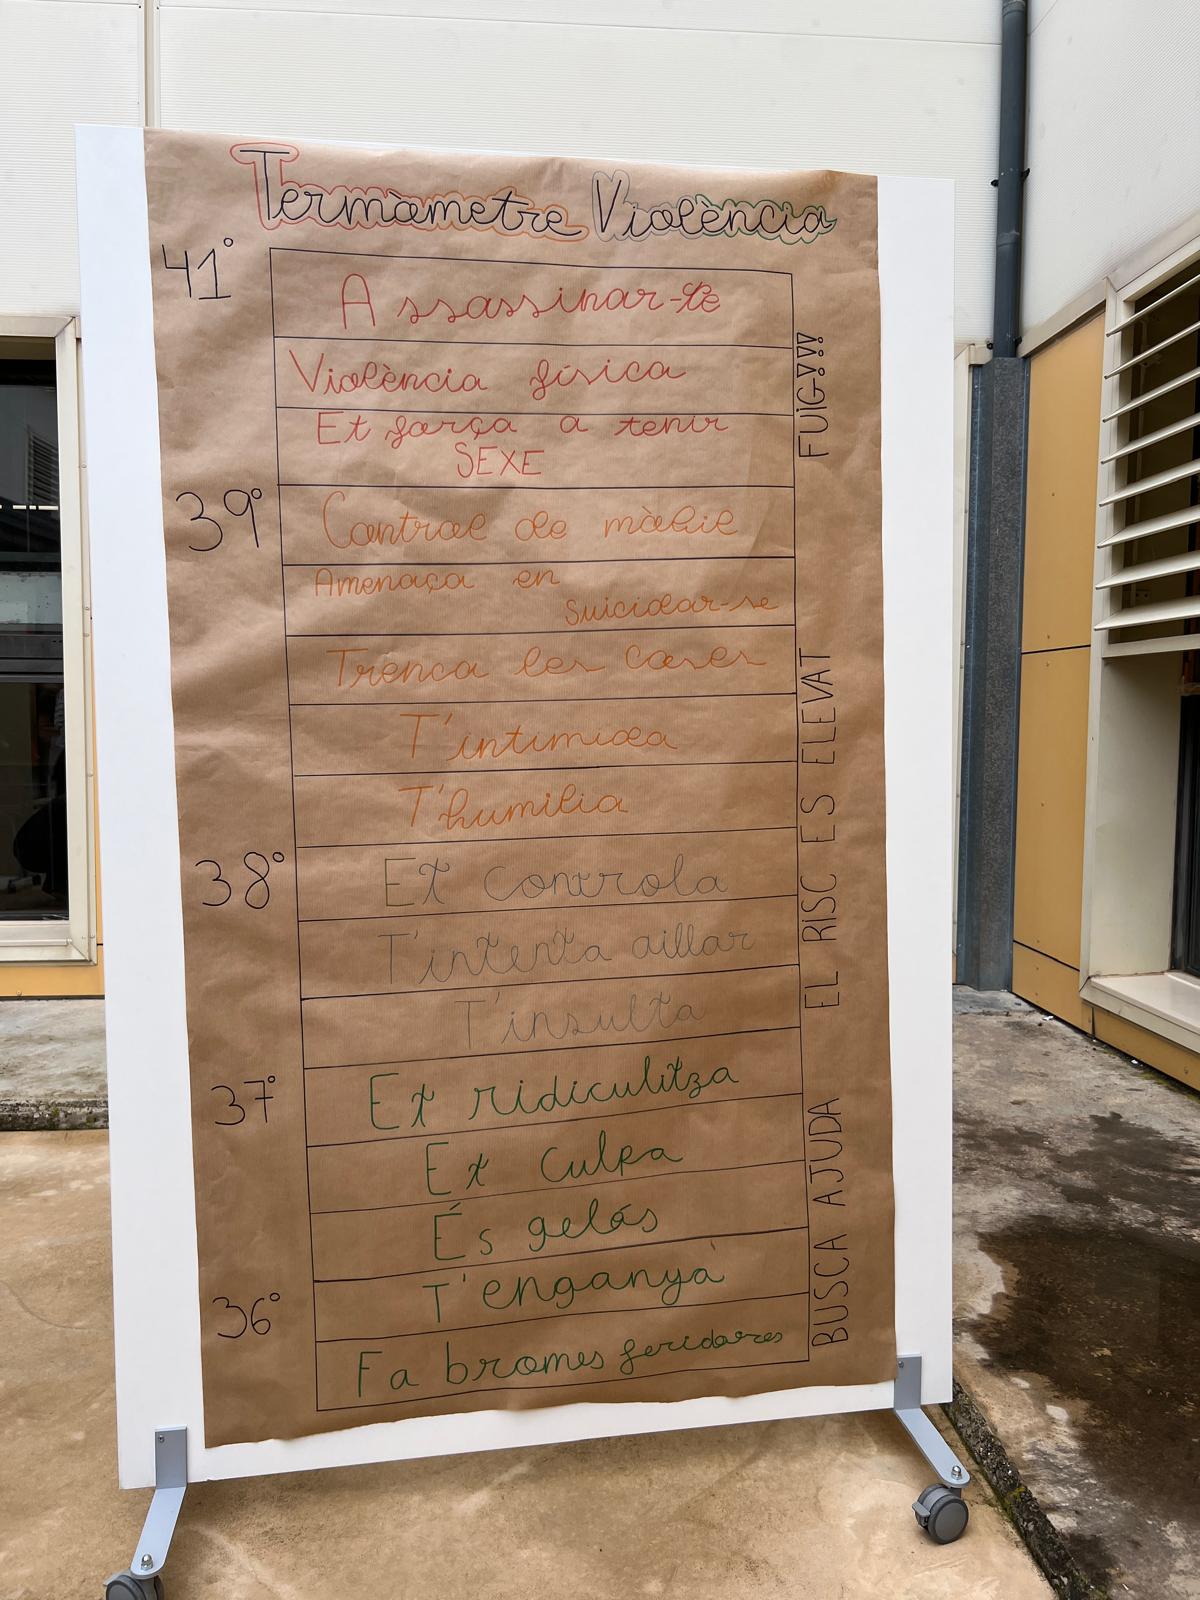 Termòmetre Violència
41°
Assassinar-te
Violència física
Et força a tenir
SEXE
39°
Control de mòbil
Amenaça en
suicidar-se
Trenca les coses
T'intimida
T'humilia
38°
Et controla
T'intenta aillar
T'insulta
37°
Et ridiculitza
Et culpa
És gelós
T'enganya
36°
Fa bromes feridores
FUIG!!!
EL RISC ES ELEVAT
BUSCA AJUDA